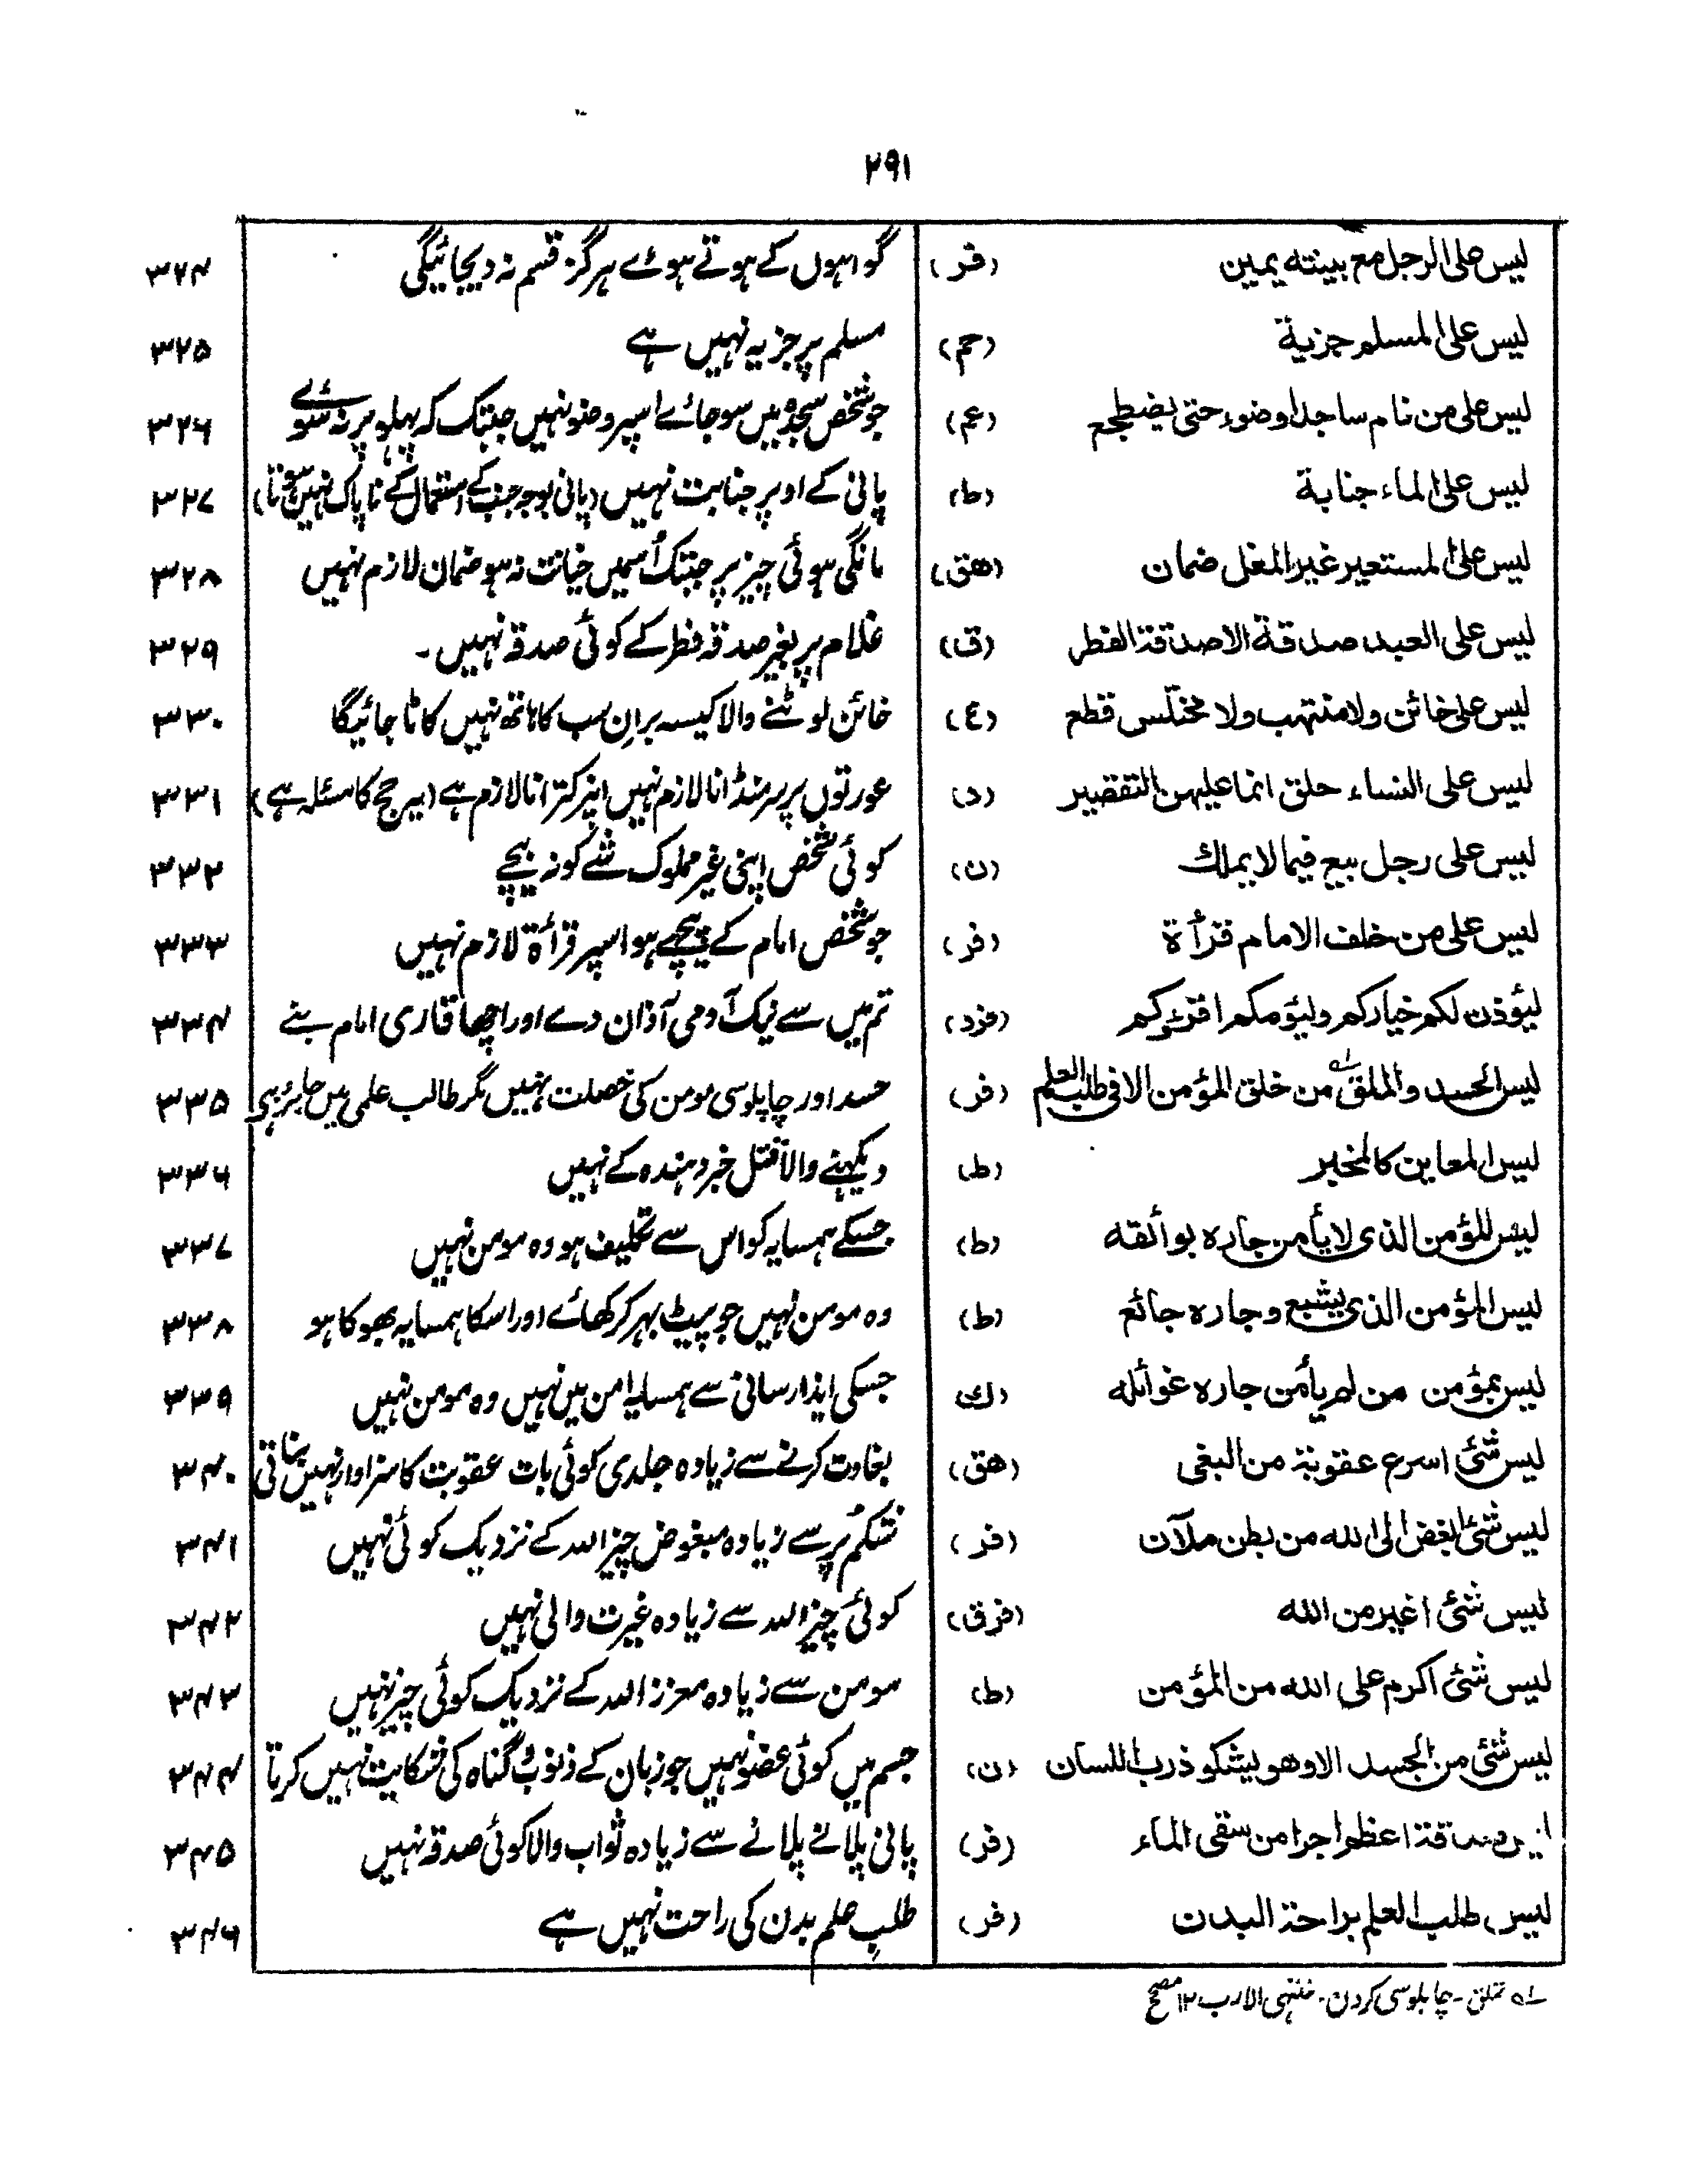 ۲۹۱
لیس علی الرجل مع بینته یمین (فر) گواہوں کے ہوتے ہوئے ہرگز قسم نہ دیجائیگی ۳۲۴
لیس علی المسلم جزیة (حم) مسلم پر جزیہ نہیں ہے ۳۲۵
لیس علی من نام ساجدا وضوء حتی یضطجع (عم) جو شخص سجدہ میں سو جائے اسپر وضو نہیں جبتک کہ پہلو پر نہ سوئے ۳۲۶
لیس علی الماء جنابة (ط) پانی کے اوپر جنابت نہیں (پانی بوجہ جنب کے استعمال کے ناپاک نہیں ہوتا) ۳۲۷
لیس علی المستعیر غیر المغل ضمان (هق) مانگی ہوئی چیز پر جبتک اُسمیں خیانت نہ ہو ضمان لازم نہیں ۳۲۸
لیس علی العبد صدقة الا صدقة الفطر (ق) غلام پر بغیر صدقہ فطر کے کوئی صدقہ نہیں ۔ ۳۲۹
لیس علی خائن ولا منتهب ولا مختلس قطع (٤) خائن لوٹنے والا کیسہ بران سب کا ہاتھ نہیں کاٹا جائیگا ۳۳۰
لیس علی النساء حلق انما علیهن التقصیر (د) عورتوں پر سر منڈانا لازم نہیں انپر کترانا لازم ہے (یہ حج کا مسئلہ ہے) ۳۳۱
لیس علی رجل بیع فیما لا یملك (ن) کوئی شخص اپنی غیر مملوک شے کو نہ بیچے ۳۳۲
لیس علی من خلف الامام قرأة (فر) جو شخص امام کے پیچھے ہو اسپر قرأۃ لازم نہیں ۳۳۳
لیؤذن لکم خیارکم ولیؤمکم اقرئکم تم میں سے نیک آدمی آذان دے اور اچھا قاری امام بنے ۳۳۴
لیس الحسد والملق من خلق المؤمن الا فی طلب العلم (فر) حسد اور چاپلوسی مومن کی خصلت نہیں مگر طالب علمی میں جائز ہی ۳۳۵
لیس المعاین کالمخبر (ط) دیکھنے والا مثل خبر دہندہ کے نہیں ۳۳۶
لیس المؤمن الذی لا یأمن جاره بوائقه (ط) جسکے ہمسایہ کو اس سے تکلیف ہو وہ مومن نہیں ۳۳۷
لیس المؤمن الذی یشبع وجاره جائع (ط) وہ مومن نہیں جو پیٹ بھر کر کھائے اور اسکا ہمسایہ بھوکا ہو ۳۳۸
لیس بمؤمن من لم یأمن جاره غوائله (ك) جسکی ایذا رسانی سے ہمسایہ امن میں نہیں وہ مومن نہیں ۳۳۹
لیس شئ اسرع عقوبة من البغی (هق) بغاوت کرنے سے زیادہ جلدی کوئی بات عقوبت کا سزاوار نہیں بناتی ۳۴۰
لیس شئ ابغض الی الله من بطن ملآن (فر) شکم پُر سے زیادہ مبغوض چیز اللہ کے نزدیک کوئی نہیں ۳۴۱
لیس شئ اغیر من الله کوئی چیز اللہ سے زیادہ غیرت والی نہیں ۳۴۲
لیس شئ اکرم علی الله من المؤمن (ط) مومن سے زیادہ معزز اللہ کے نزدیک کوئی چیز نہیں ۳۴۳
لیس شئ من الجسد الا وهو یشکو ذرب اللسان (ن) جسم میں کوئی عضو نہیں جو زبان کے گناہ کی شکایت نہیں کرتا ۳۴۴
صدقة اعظم اجرا من سقی الماء (فر) پانی پلانے سے زیادہ ثواب والا کوئی صدقہ نہیں ۳۴۵
لیس طلب العلم براحة البدن (فر) طلبِ علم بدن کی راحت نہیں ہے ۳۴۶
لہ تملق - چاپلوسی کردن - منتہی الارب ۱۲ مصحح